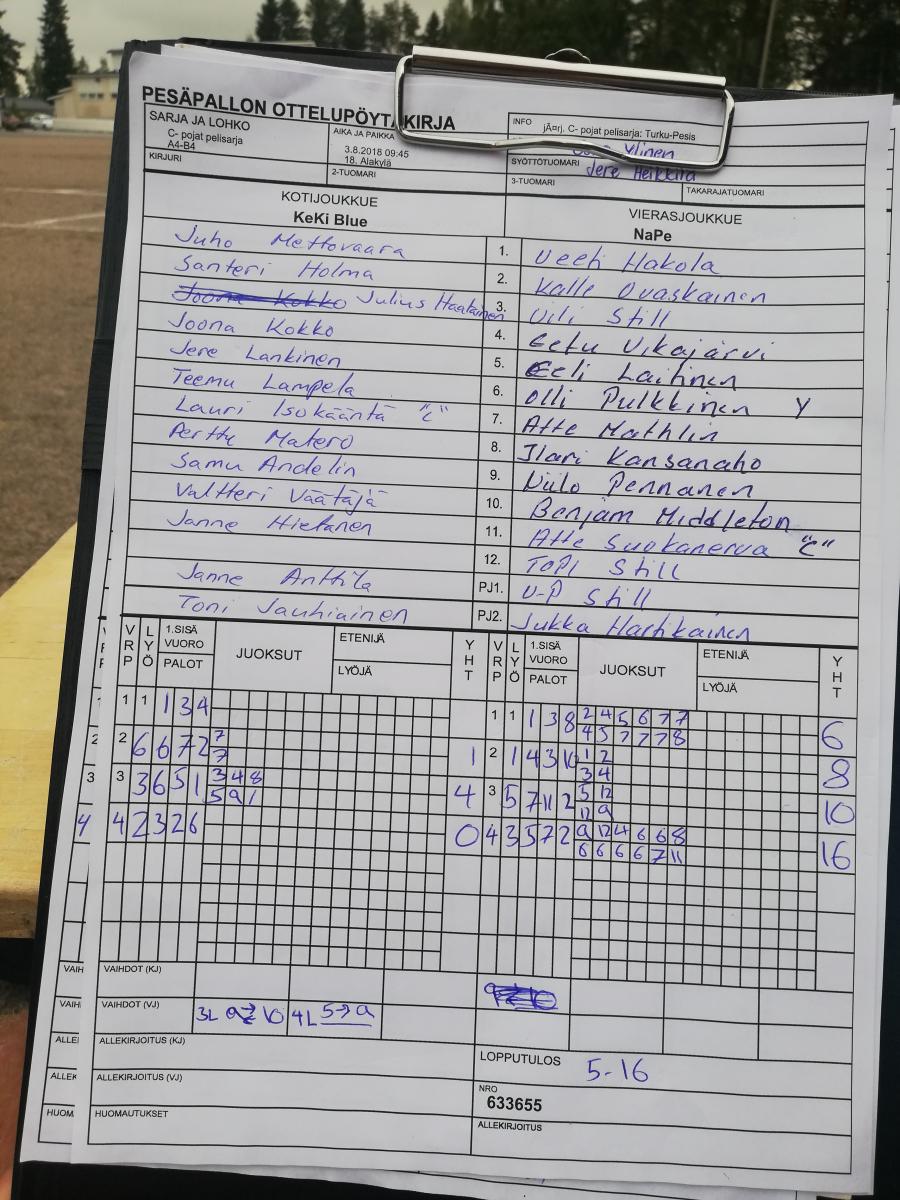 PESÄPALLON OTTELUPÖYTÄKIRJA
SARJA JA LOHKO
C- pojat pelisarja
A4-B4
AIKA JA PAIKKA
3.8.2018 09:45
18. Alakylä
INFO
jÃ¤rj. C- pojat pelisarja: Turku-Pesis
Ylinen
KIRJURI
2-TUOMARI
SYÖTTÖTUOMARI
Jere Heikkilä
3-TUOMARI
TAKARAJATUOMARI
KOTIJOUKKUE
KeKi Blue
VIERASJOUKKUE
NaPe
Juho Mettovaara 1. Veeti Hakola
Santeri Holma 2. Kalle Ovaskainen
Joona Kokko Julius Haatainen 3. Vili Still
Joona Kokko 4. Eetu Vikajärvi
Jere Lankinen 5. Eeli Laitinen
Teemu Lampela 6. Olli Pulkkinen Y
Lauri Isokääntä "C" 7. Atte Mathlin
Perttu Matero 8. Ilari Kansanaho
Samu Andelin 9. Niilo Pennanen
Valtteri Väätäjä 10. Benjam Middleton
Janne Hietanen 11. Atte Suokanerva "C"
12. Topi Still
Janne Anttila PJ1. V-P Still
Toni Jauhiainen PJ2. Jukka Hartikainen
VRP LYÖ 1.SISÄ VUORO PALOT JUOKSUT ETENIJÄ LYÖJÄ YHT VRP LYÖ 1.SISÄ VUORO PALOT JUOKSUT ETENIJÄ LYÖJÄ YHT
1 1 1 3 4
1 1 1 3 8 2 4 5 6 7 7 6
4 5 7 7 7 8
2 6 6 7 2 7 1
7
2 1 4 3 10 1 2 8
3 4
3 3 6 5 1 3 4 8 4
5 9 1
3 5 7 11 2 5 12 10
12 9
4 4 2 3 2 6 0
4 3 5 7 2 9 12 4 6 6 8 16
6 6 6 6 7 11
VAIHDOT (KJ)
VAIHDOT (VJ) 3L 9⇄10 4L 5→9
ALLEKIRJOITUS (KJ)
LOPPUTULOS 5-16
ALLEKIRJOITUS (VJ)
NRO
633655
HUOMAUTUKSET
ALLEKIRJOITUS